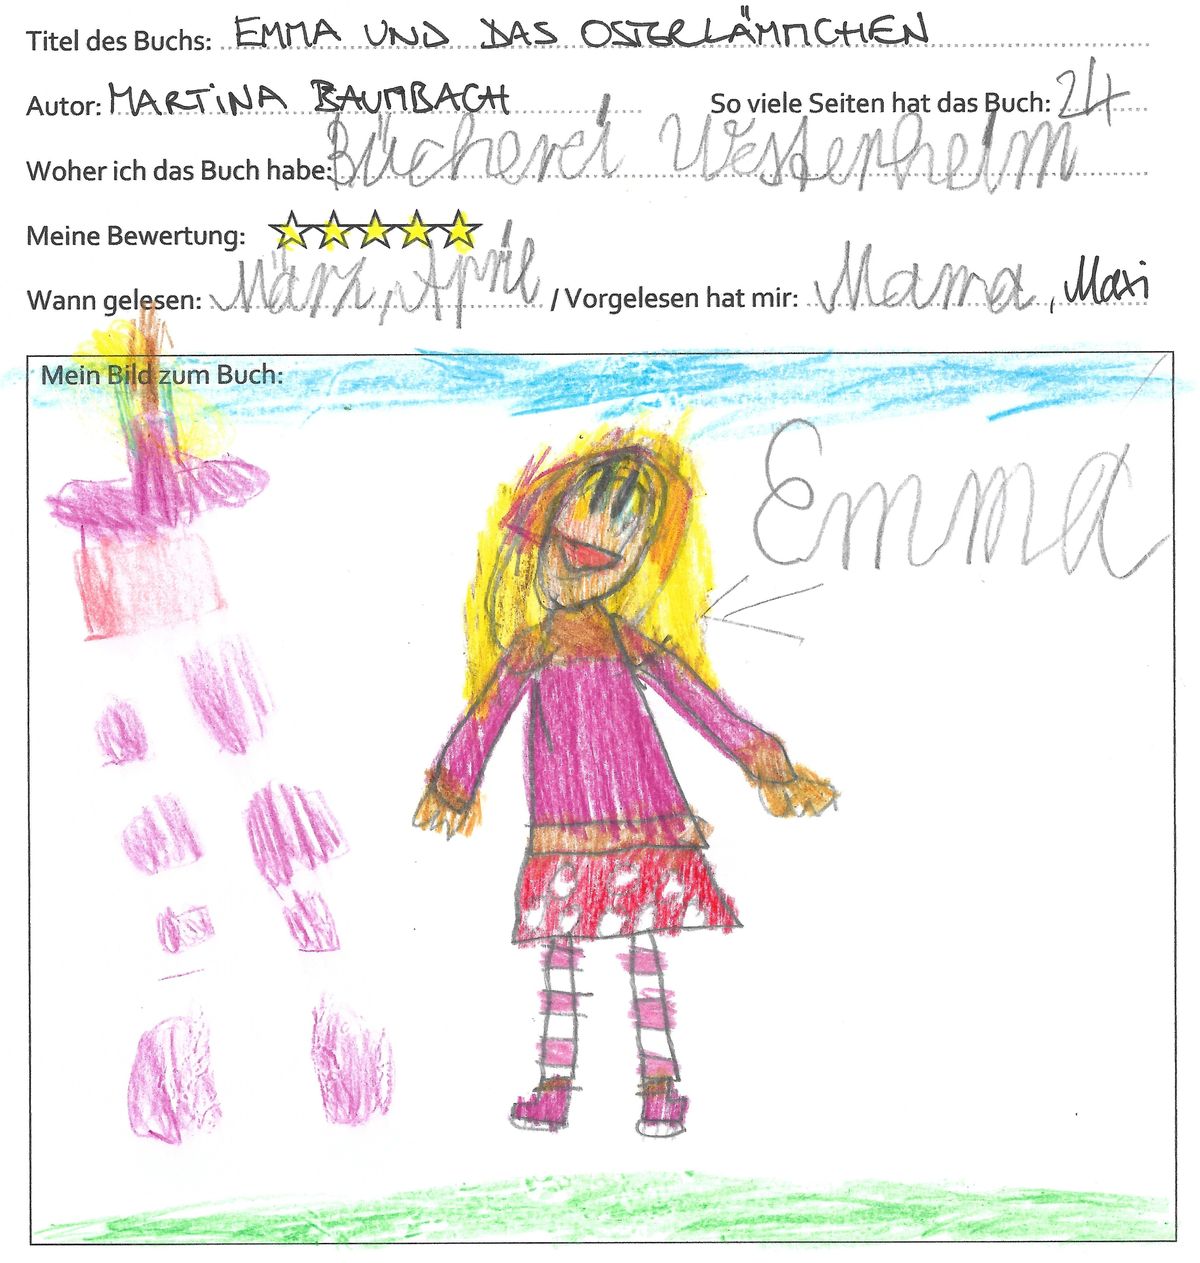 Titel des Buchs: EMMA UND DAS OSTERLÄMMCHEN
Autor: MARTINA BAUMBACH So viele Seiten hat das Buch: 24
Woher ich das Buch habe: Bücherei Westerheim
Meine Bewertung:
Wann gelesen: März, April / Vorgelesen hat mir: Mama, Maxi
Mein Bild zum Buch:
Emma